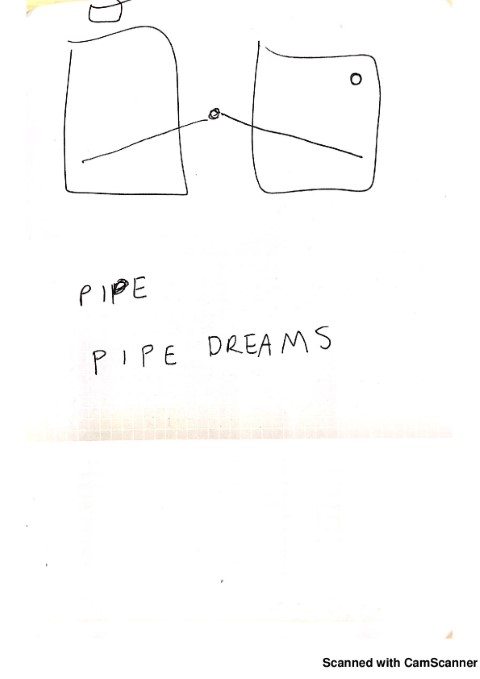 PIPE
PIPE DREAMS
Scanned with CamScanner